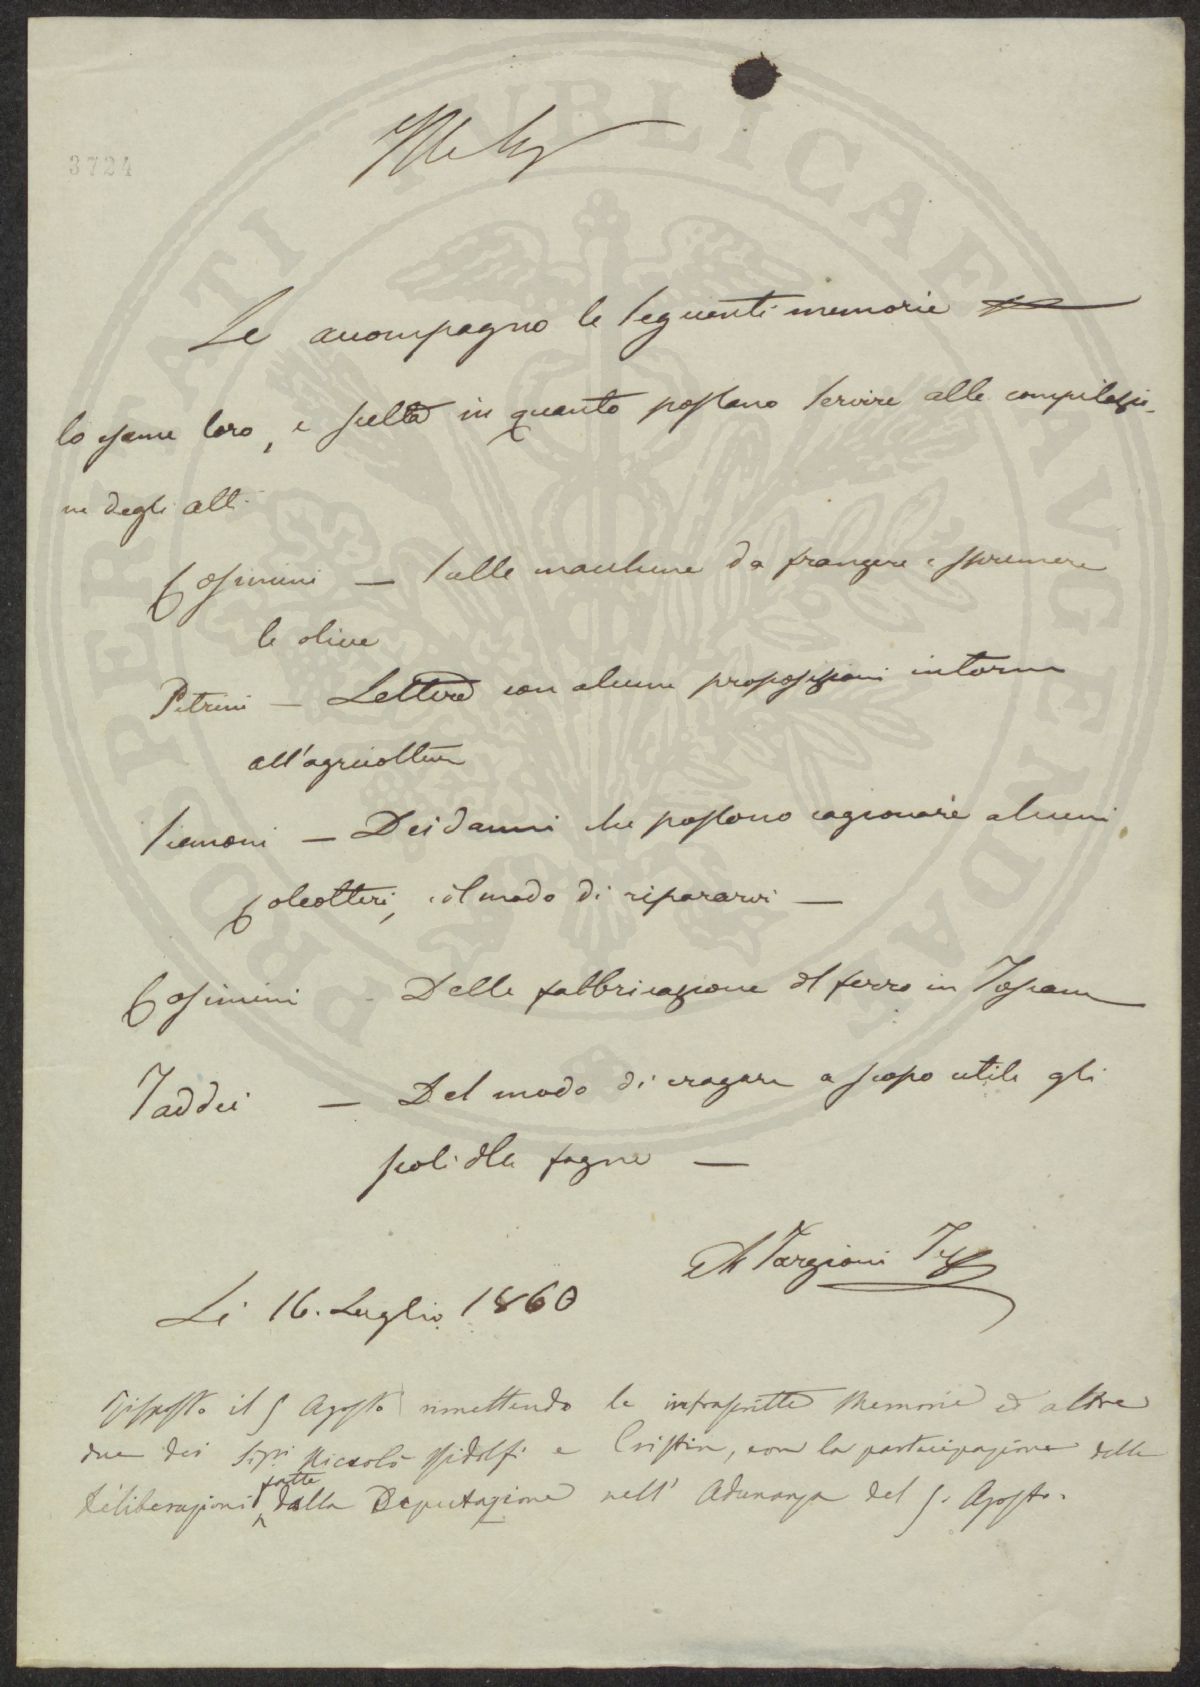 3724
Le accompagno le seguenti memorie
lo esame loro, e scelta in quanto possano servire alla compilazio-
ne degli atti
Cosimini — Sulle macchine da frangere e sprimere
le olive
Petrini — Lettera con alcune proposizioni intorno
all'agricoltura
Siemoni — Dei danni che possono cagionare alcuni
Coleotteri, e il modo di ripararvi —
Cosimini - Della fabbricazione del ferro in Toscana
Taddei — Del modo di erogare a scopo utile gli
scoli delle fogne —
A Targioni Tozz
Li 16. Luglio 1860
Risposto il 5 Agosto rimettendo le infrascritte Memorie ed altre
due dei Sigri Niccolò Ridolfi e Cristin, con la partecipazione delle
fatte
deliberazioni dalla Deputazione nell' Adunanza del 5. Agosto.
PROSPERITATI PUBLICAE AVGENDAE